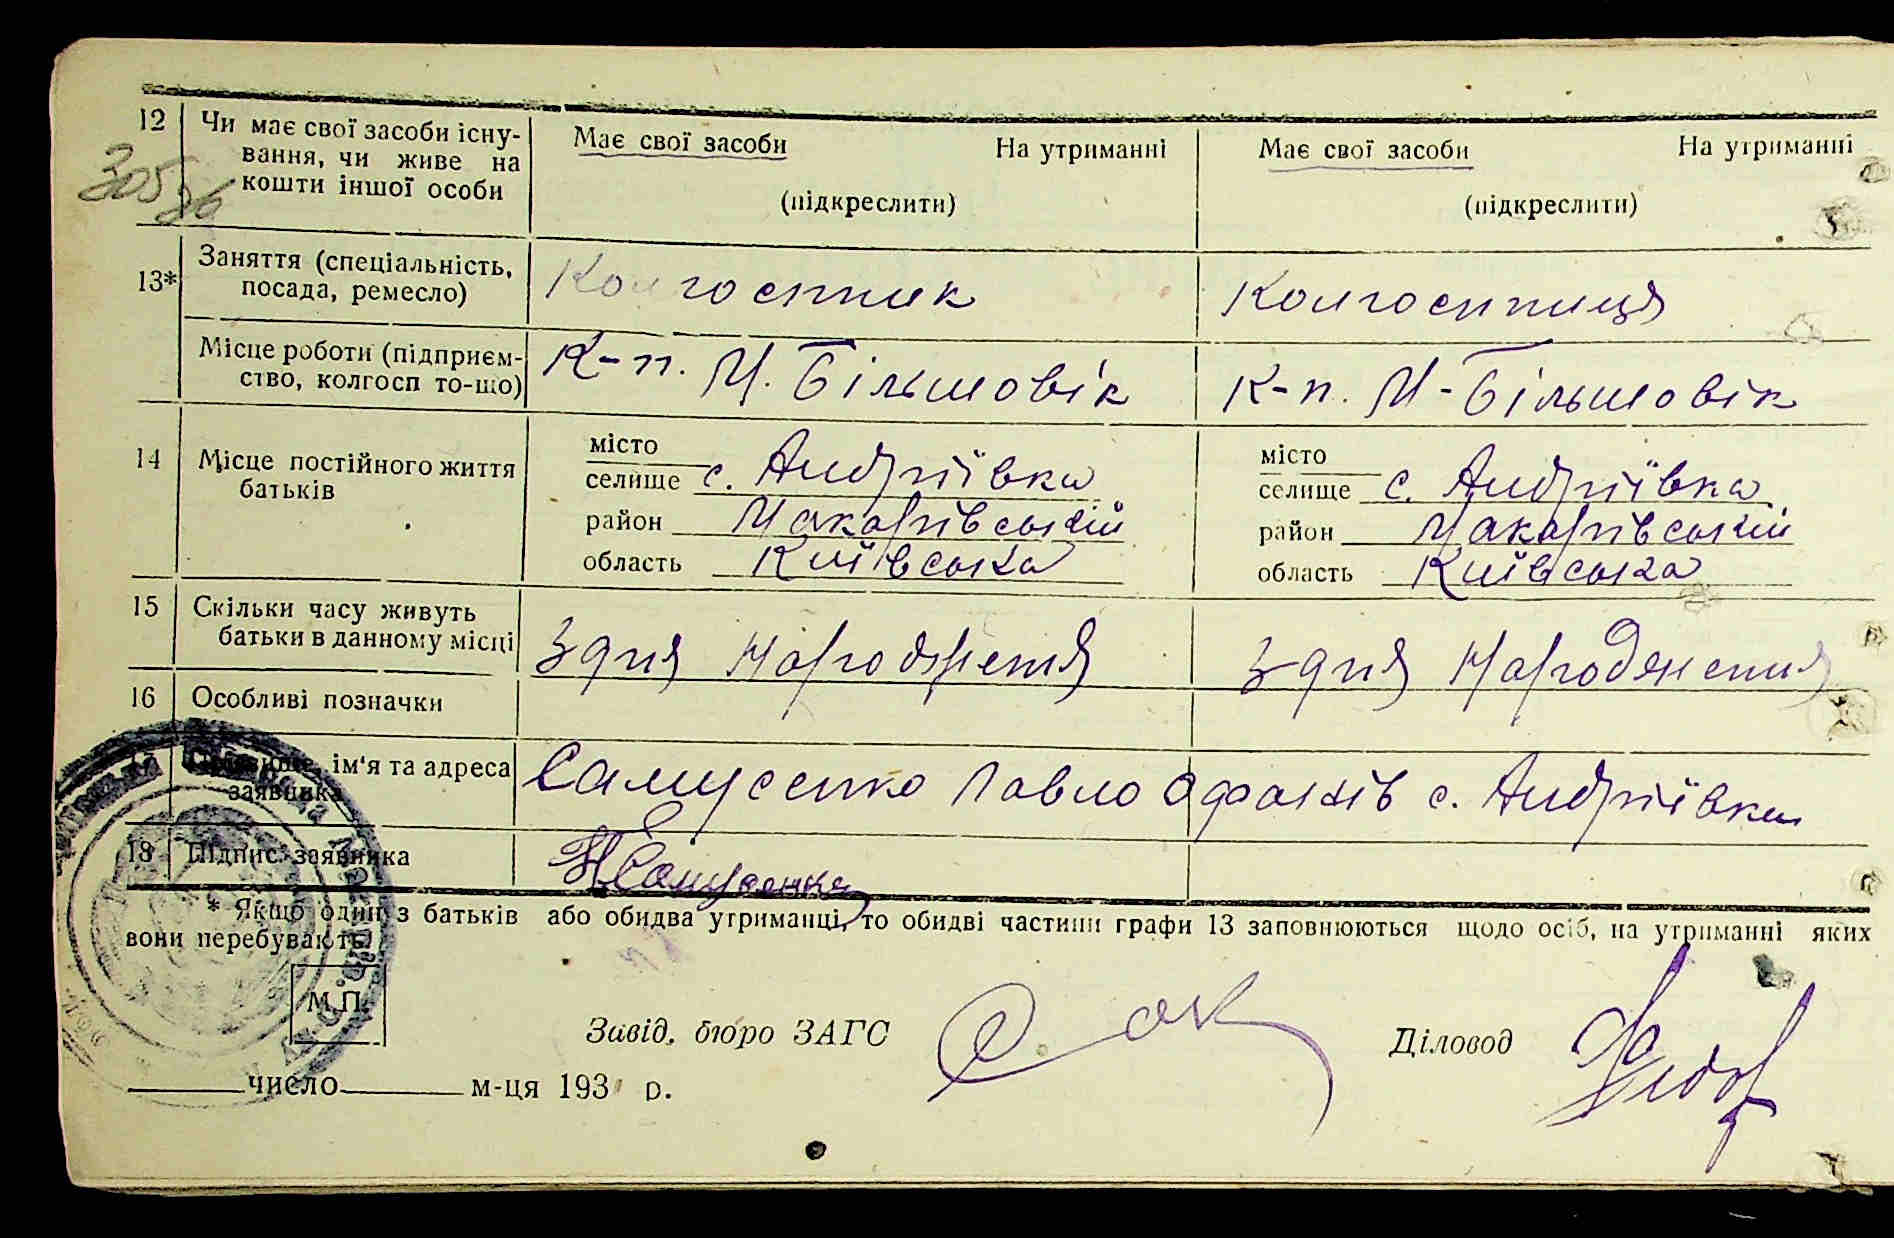 12 Чи має свої засоби існу- Має свої засоби На утриманні Має свої засоби На утриманні
вання, чи живе на
кошти іншої особи (підкреслити) (підкреслити)
305
13* Заняття (спеціальність, Колгоспник Колгоспниця
посада, ремесло)
Місце роботи (підприєм- К-п. М. Більшовік К-п. М-Більшовік
ство, колгосп то-що)
14 Місце постійного життя місто місто
батьків селище с. Андріївка селище с. Андріївка
район Макарівський район Макарівський
область Київська область Київська
15 Скільки часу живуть З дня народження З дня народження
батьки в данному місці
16 Особливі позначки
17 Прізвище, ім'я та адреса Самусенко Павло с. Андріївка
заявника
18 Підпис заявника Самусенко
* Якщо один з батьків або обидва утриманці, то обидві частини графи 13 заповнюються щодо осіб, на утриманні яких
вони перебувають.
М.П.
Завід. бюро ЗАГС Діловод
число м-ця 193 р.